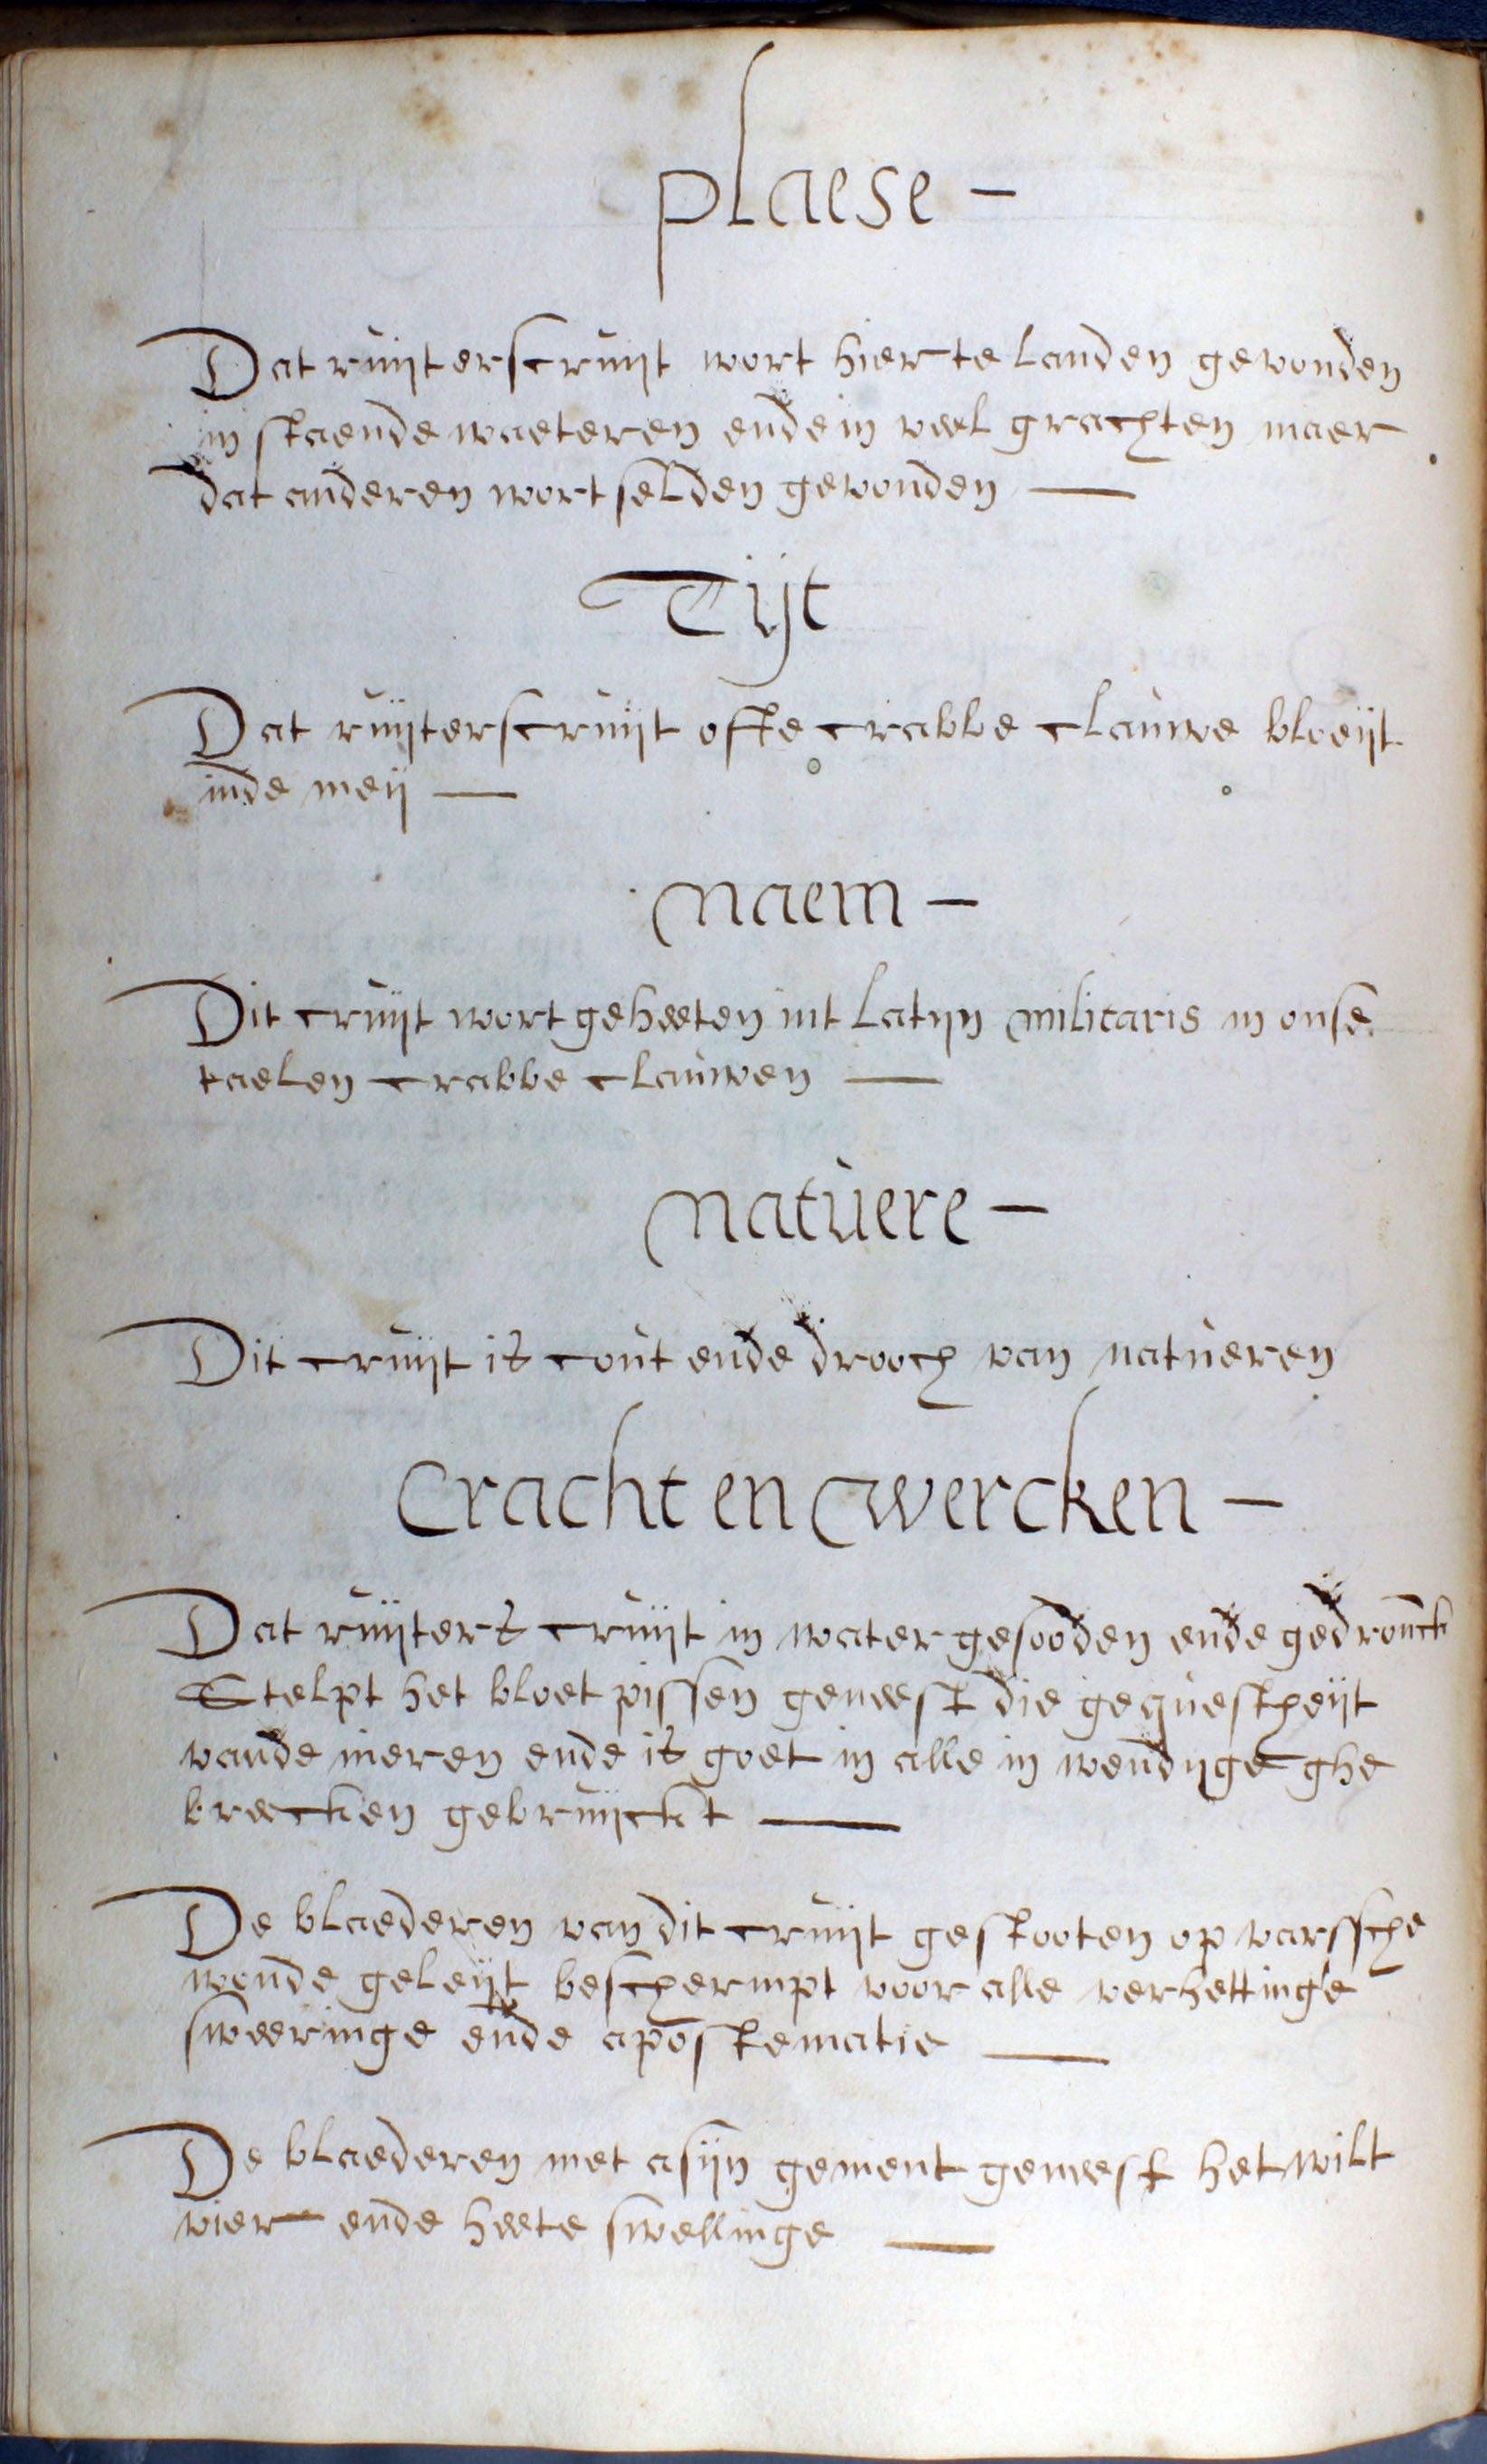 plaese —
Dat ruijterscruijt wort hier te landen gevonden
in staende waeteren ende in veel grachten maer
dat anderen wort selden gevonden —
Tijt
Dat ruijterscruijt ofte crabbe clauwe bloeijt
inde meij —
Naem —
Dit cruijt wort geheeten int latijn militaris in onse
taelen crabbe clauwen —
Natuere —
Dit cruijt is cout ende drooch van natueren
Cracht en wercken —
Dat ruijters cruijt in water gesooden ende gedronck
Stelpt het bloet pissen geneest die gequestheijt
vande nieren ende is goet in alle in wendijge ghe
breecken gebruijckt —
De blaederen van dit cruijt gestooten op varssche
wonde geleijt beschermpt voor alle verhettinge
sweeringe ende apostematie —
De blaederen met asijn gement geneest het wilt
vier ende heete swellinge —